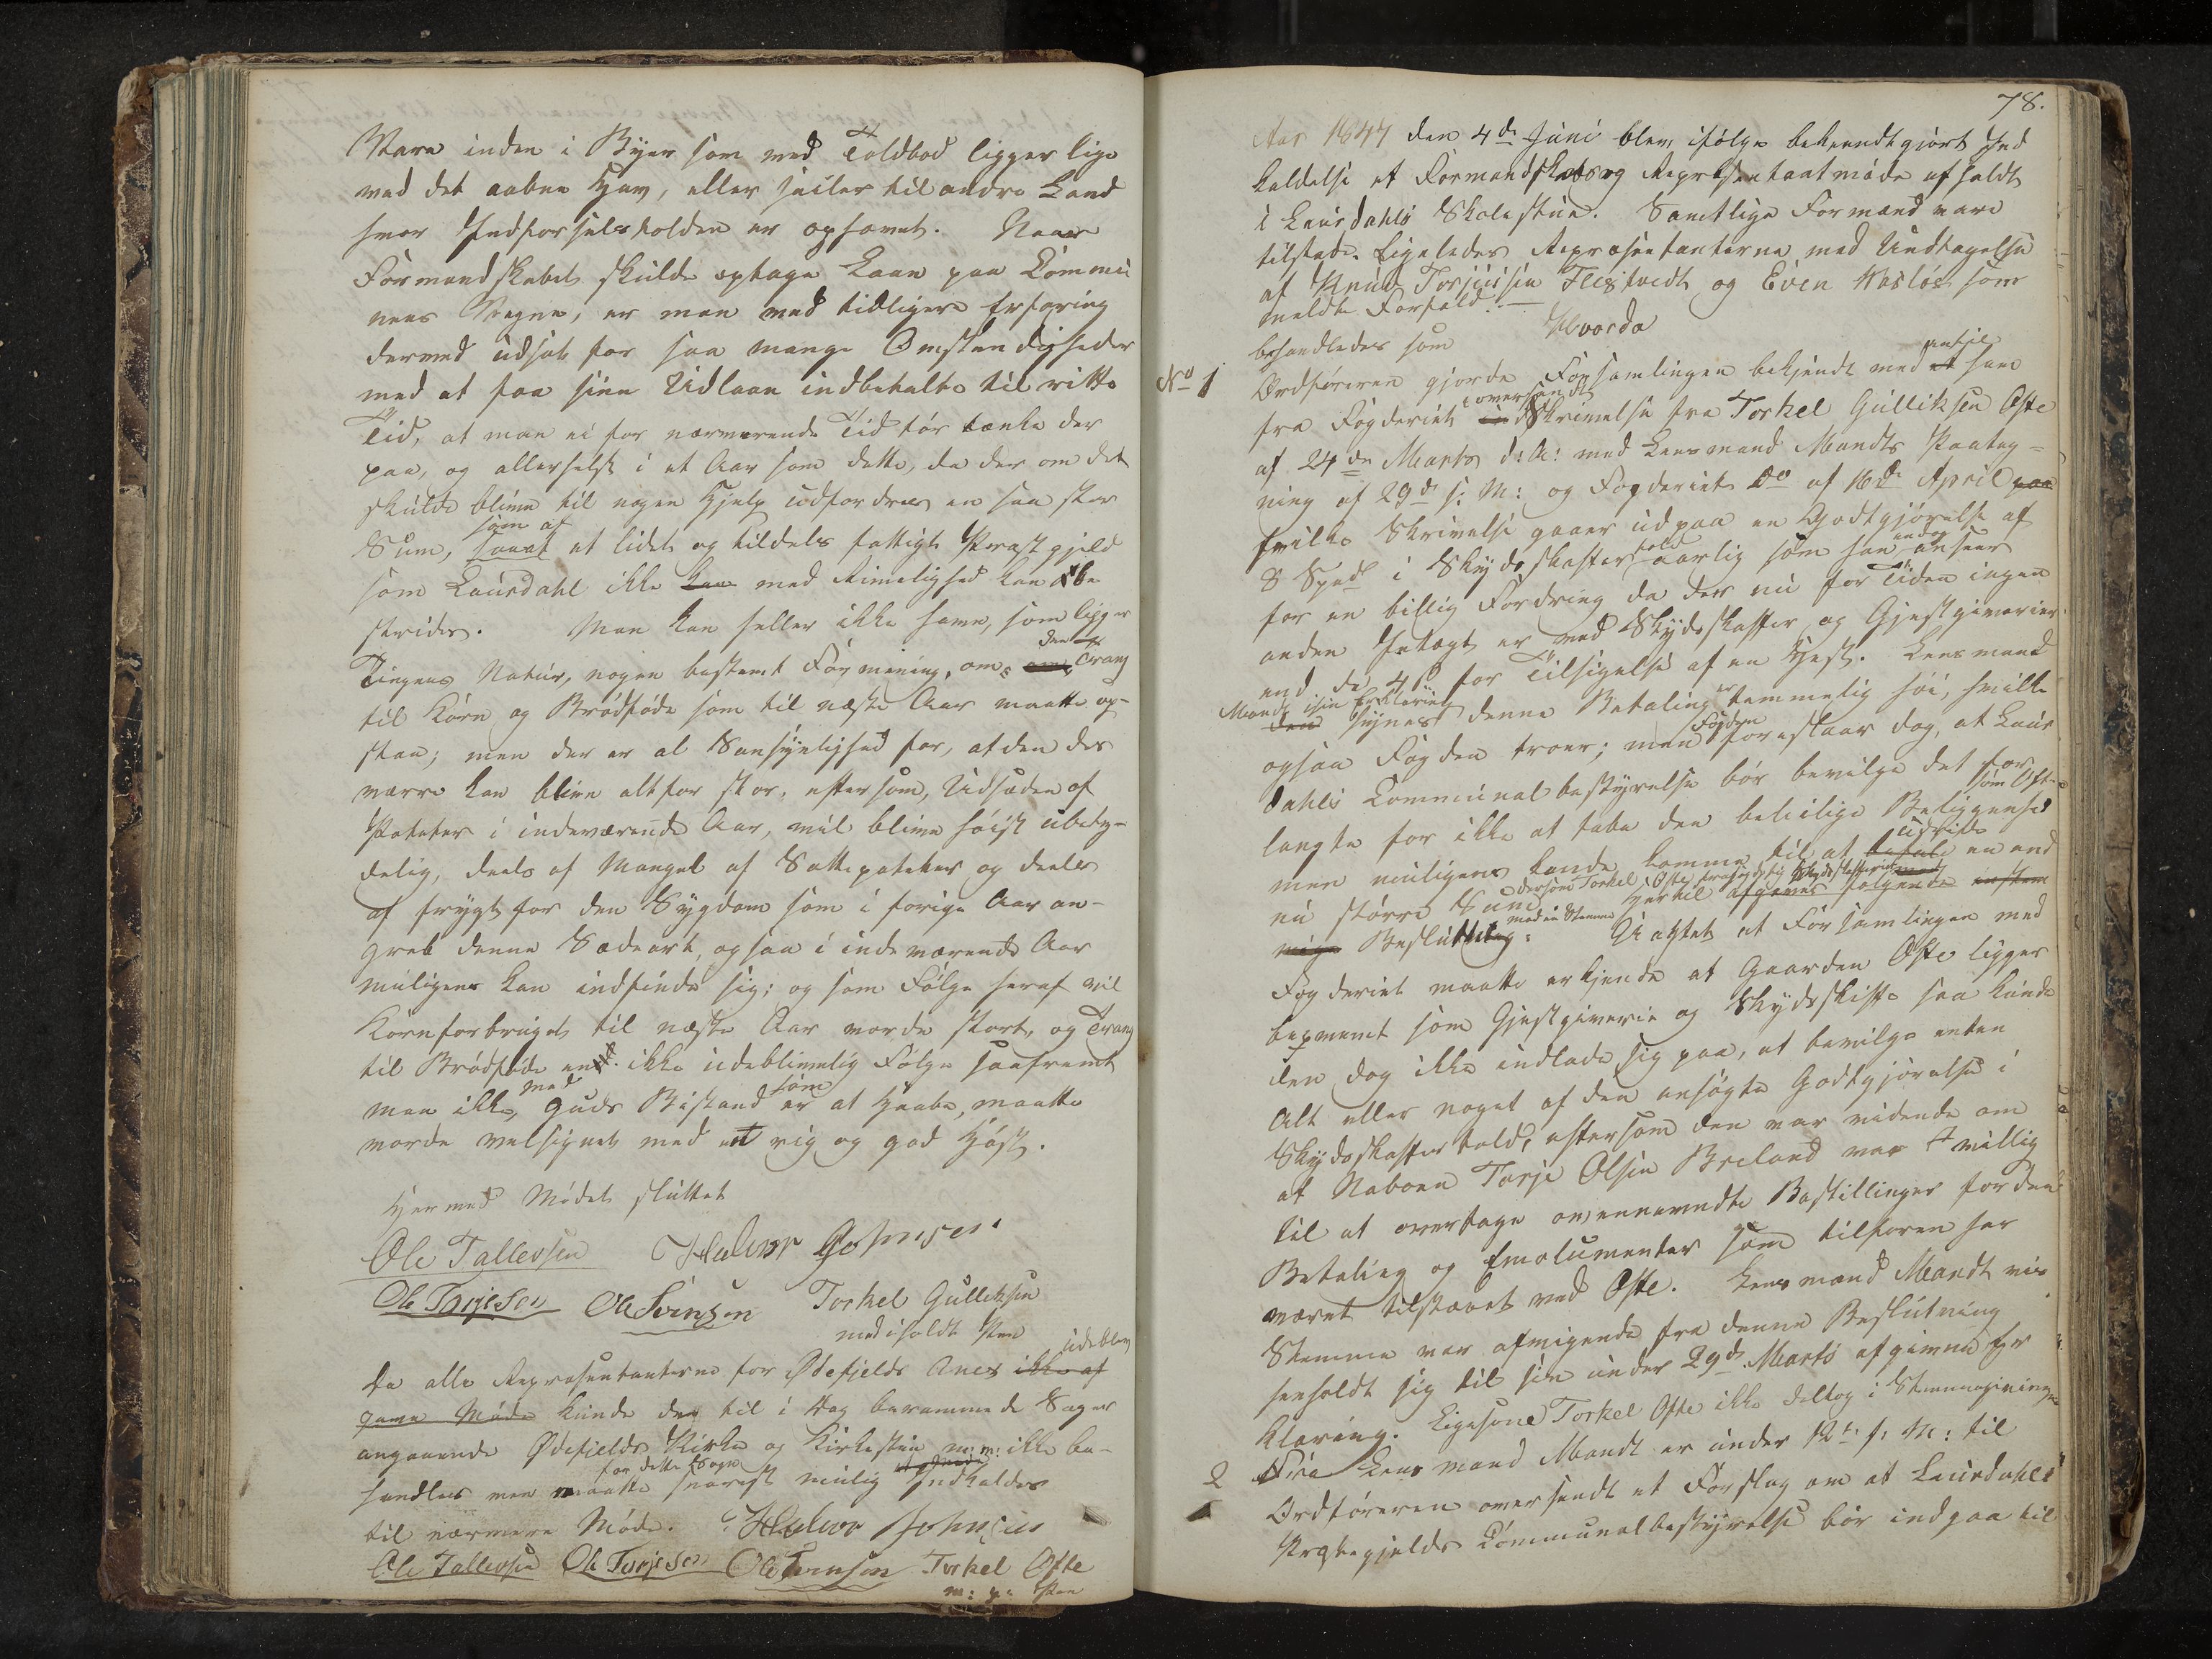 Vare inden i Byer som med Toldbod ligger lige
ved det aabne Hav, eller seiler til andre Land
hvor Indførselstolden er ophævet. Naar
Formandskabet skulde optage Laan paa Commu
nens Vegne, er man med tidligere Erfaring
dermed udsat for saa mange Omstændigheder
med at faa sine Udlaan indbetalte til rette
Tid, at man ei for nærværende Tid tør tænke der
paa, og allerhelst i et Aar som dette, da der om det
skulde blive til nogen Hjelp udfordres en saa stor
Sum, som af et lidet og tildels fattigt Præstgjeld
som Laurdahl ikke med Rimelighed kan be
strides. Man kan heller ikke have, som ligger
Tingens Natur, nogen bestemt Formening, om den Trang
til Korn og Brødføde som til næste Aar maatte op-
staa; men der er al Sansynlighed for, at den des
værre kan blive altfor stor, eftersom, Udsæden af
Poteter i indeværende Aar, vil blive høist ubety-
delig, deels af Mangel af Sættepoteter og deels
af frygt for den Sygdom som i forige Aar an-
greb denne Sædeart, ogsaa i indeværende Aar
muligens kan indfinde sig; og som Følge heraf vil
Kornforbruget til næste Aar vorde stort, og Trang
til Brødføde en ikke udeblivelig Følge saafremt
man ikke, med Guds Bistand som er at haabe, maatte
vorde velsignet med et rig og god Høst.
Hermed Mødet sluttet
Ole Tallevsen Halvor Johnsen
Ole Torjesen Ole Svensen Torkel Gulliksen
med iholdt Pen
Da alle Repræsentanterne for Ødefjelds Anex ikke af udeblev
gave Møde kunde der til i Dag berammede Sager
angaaende Ødefjelds Kirke og Kirkestue m: m: ikke be-
handles men maatte for dette Sogn snarest mulig Indkaldes
til nærmere Møde. Halvor Johnsen
Ole Tallevsen Ole Torjesen Ole Svensen Torkel Ofte
m: p: Pen
78.
Aar 1847 den 4de Juni blev ifølge bekjendtgjort Ind
kaldelse et Formandskabs og Repræsentantmøde afholdt
i Laurdahls Skolestue. Samtlige Formænd vare
tilstede. Ligeledes Repræsentanterne med Undtagelse
af Knud Torjussen Fleistvedt og Even Vasløs som
meldte Forfald. — Hvorda
behandledes som
No 1 Ordføreren gjorde Forsamlingen bekjendt med en til ham
fra Fogderiet oversendt Skrivelse fra Torkel Gulliksen Ofte
af 24de Marts d: A: med Lensmand Mandts Paateg-
ning af 29de s: M: og Fogderiets Do af 16de April paa
hvilke Skrivelse gaaer ud paa en Godtgjørelse af
8 Spd i Skydsskafferhold aarlig som han anseer
for en billig Fordring da der nu for Tiden ingen
anden Indtægt er ved Skydsskaffer og Gjestgiverier
end de 4 ß for Tilsigelse af en Hest. Lensmand
Mandt i sin Erklæring synes denne Betaling er temmelig høi, hvilke
ogsaa Fogden troer; men Fogden foreslaar dog, at Laur
dahls Communalbestyrelse bør bevilge det for
langte for ikke at tabe den beleilige Beliggenhed som Ofte
men muligens kunde komme til at udrede en end
nu større Sum dersom Torkel Ofte frasagde sig Skydsskafferiet Hertil afgaves følgende eenstem
mige Beslutning: med en Stemme Uagtet at Forsamlingen med
Fogderiet maatte erkjende at Gaarden Ofte ligger
beqvemt som Gjestgiverie og Skydsskifte saa kunde
den dog ikke indlade sig paa, at bevilge enten
Alt eller noget af den ansøgte Godtgjørelse i
Skydsskafferhold, eftersom den var vidende om
at Naboen Torje Olsen Breland var villig
til at overtage ovennævndte Bestillinger for den
Betaling og Emolumenter som tilforen har
været tilstaaet ved Ofte. Lensmand Mandt vis
Stemme var afvigende fra denne Beslutning
henholdt sig til sin under 29de Marts afgivne Er
klæring. Ligesom Torkel Ofte ikke deltog i Stemmegivningen
2 Fra Lensmand Mandt er under 12te f: M: til
Ordføreren oversendt et Forslag om at Laurdahls
Præstegjelds Communalbestyrelse bør indgaa til